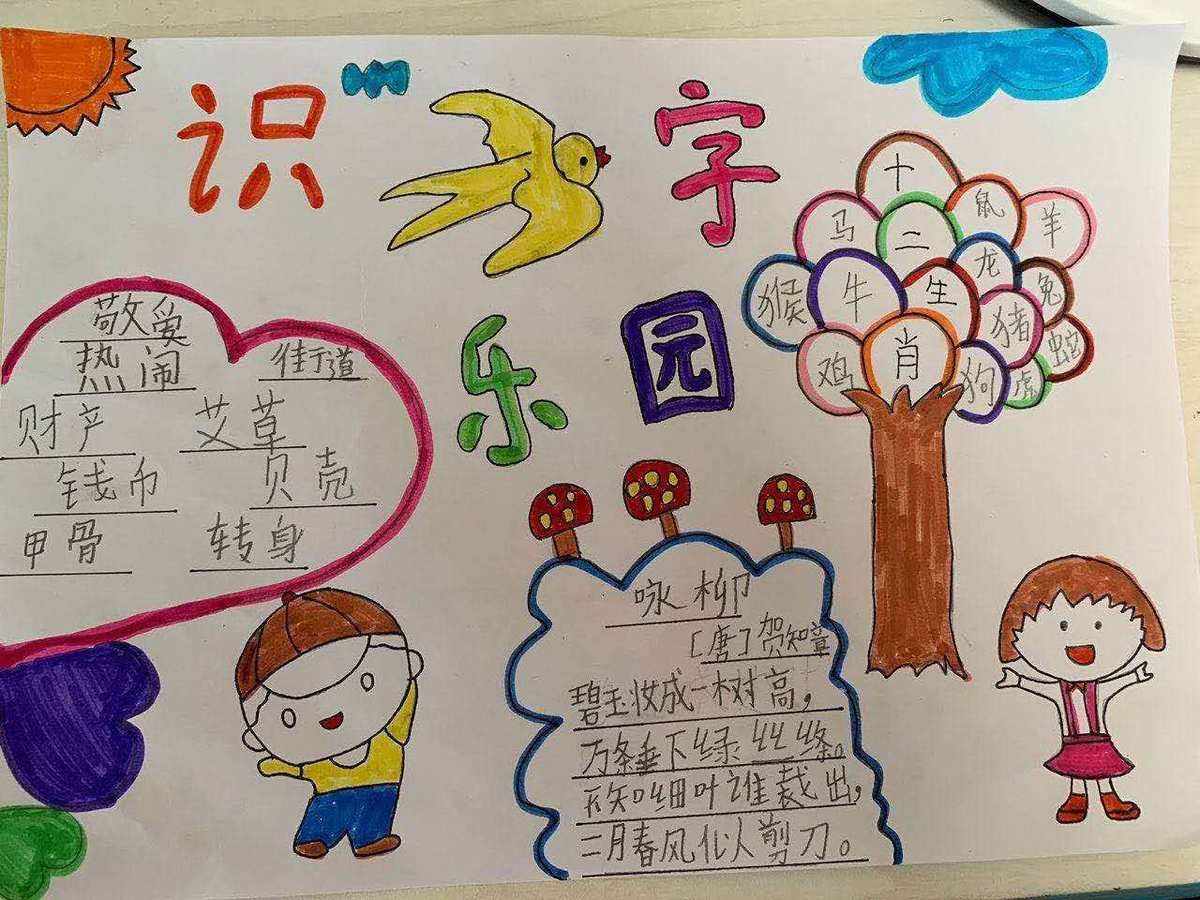 识字
乐园
敬爱
热闹 街道
财产 艾草
钱币 贝壳
甲骨 转身
十
马 二 鼠 羊
猴 牛 生 龙 兔
鸡 肖 猪 蛇
狗 虎
咏柳
[唐]贺知章
碧玉妆成一树高，
万条垂下绿丝丝绦。
不知细叶谁裁出，
二月春风化人剪刀。